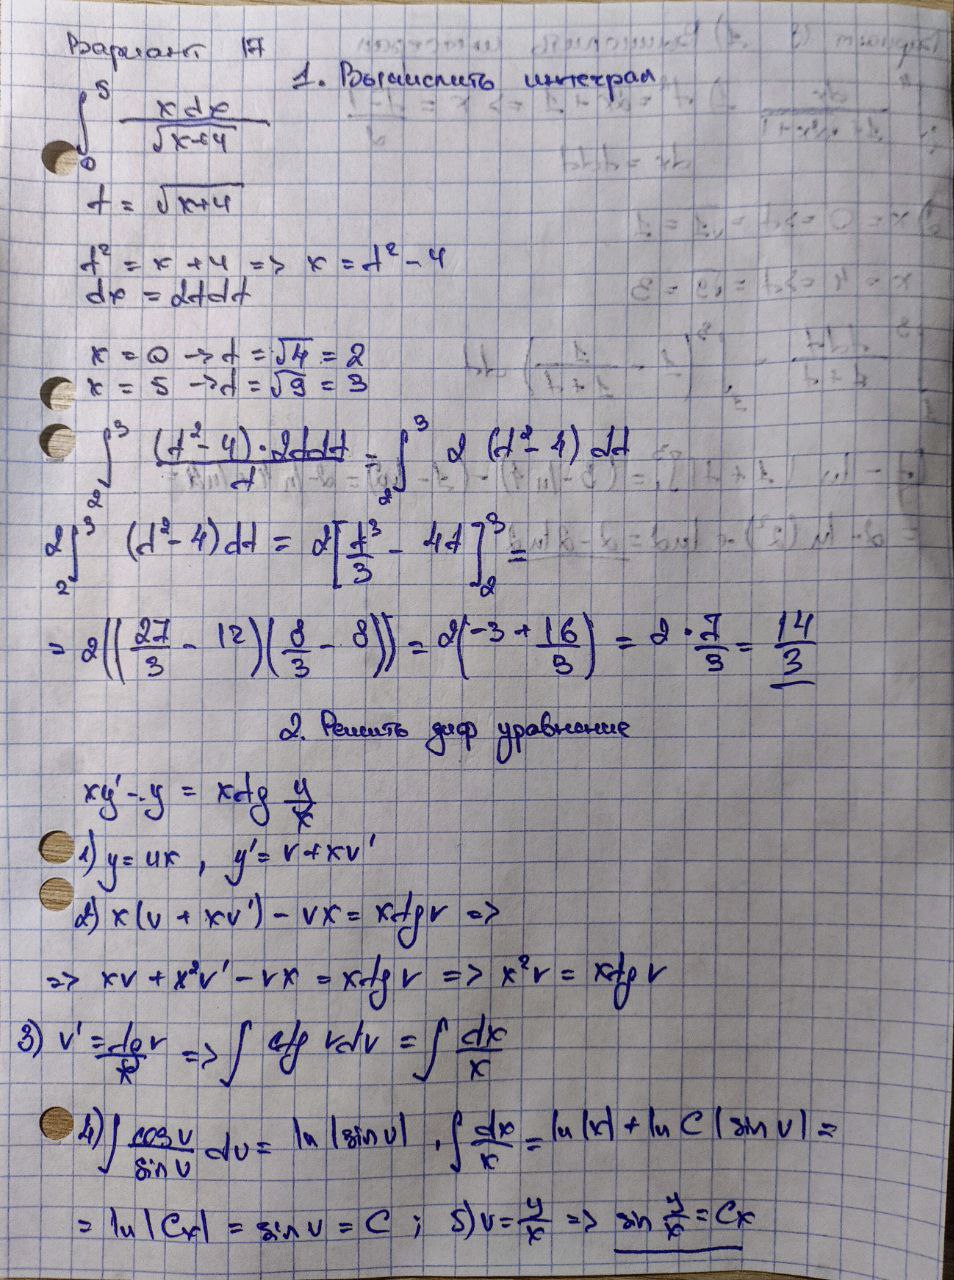 Вариант 17
1. Вычислить интеграл
∫₀⁵ x dx / √(x+4)
t = √(x+4)
t² = x + 4 => x = t² - 4
dx = 2t dt
x = 0 → t = √4 = 2
x = 5 → t = √9 = 3
∫₂³ (t² - 4) · 2t dt / t = ∫₂³ 2 (t² - 4) dt
2 ∫₂³ (t² - 4) dt = 2 [t³/3 - 4t]₂³ =
= 2((27/3 - 12)(8/3 - 8)) = 2(-3 + 16/3) = 2 · 7/3 = 14/3
2. Решить диф уравнение
xy' - y = x tg y/x
1) y = ux, y' = v + xv'
2) x(v + xv') - vx = x tg v =>
=> xv + x²v' - vx = x tg v => x²v = x tg v
3) v' = tg v / x => ∫ ctg v dv = ∫ dx/x
4) ∫ cos v / sin v dv = ln |sin v|, ∫ dx/x = ln |x| + ln C |sin v| =
= ln |Cx| = sin v = C ; 5) v = y/x => sin y/x = Cx